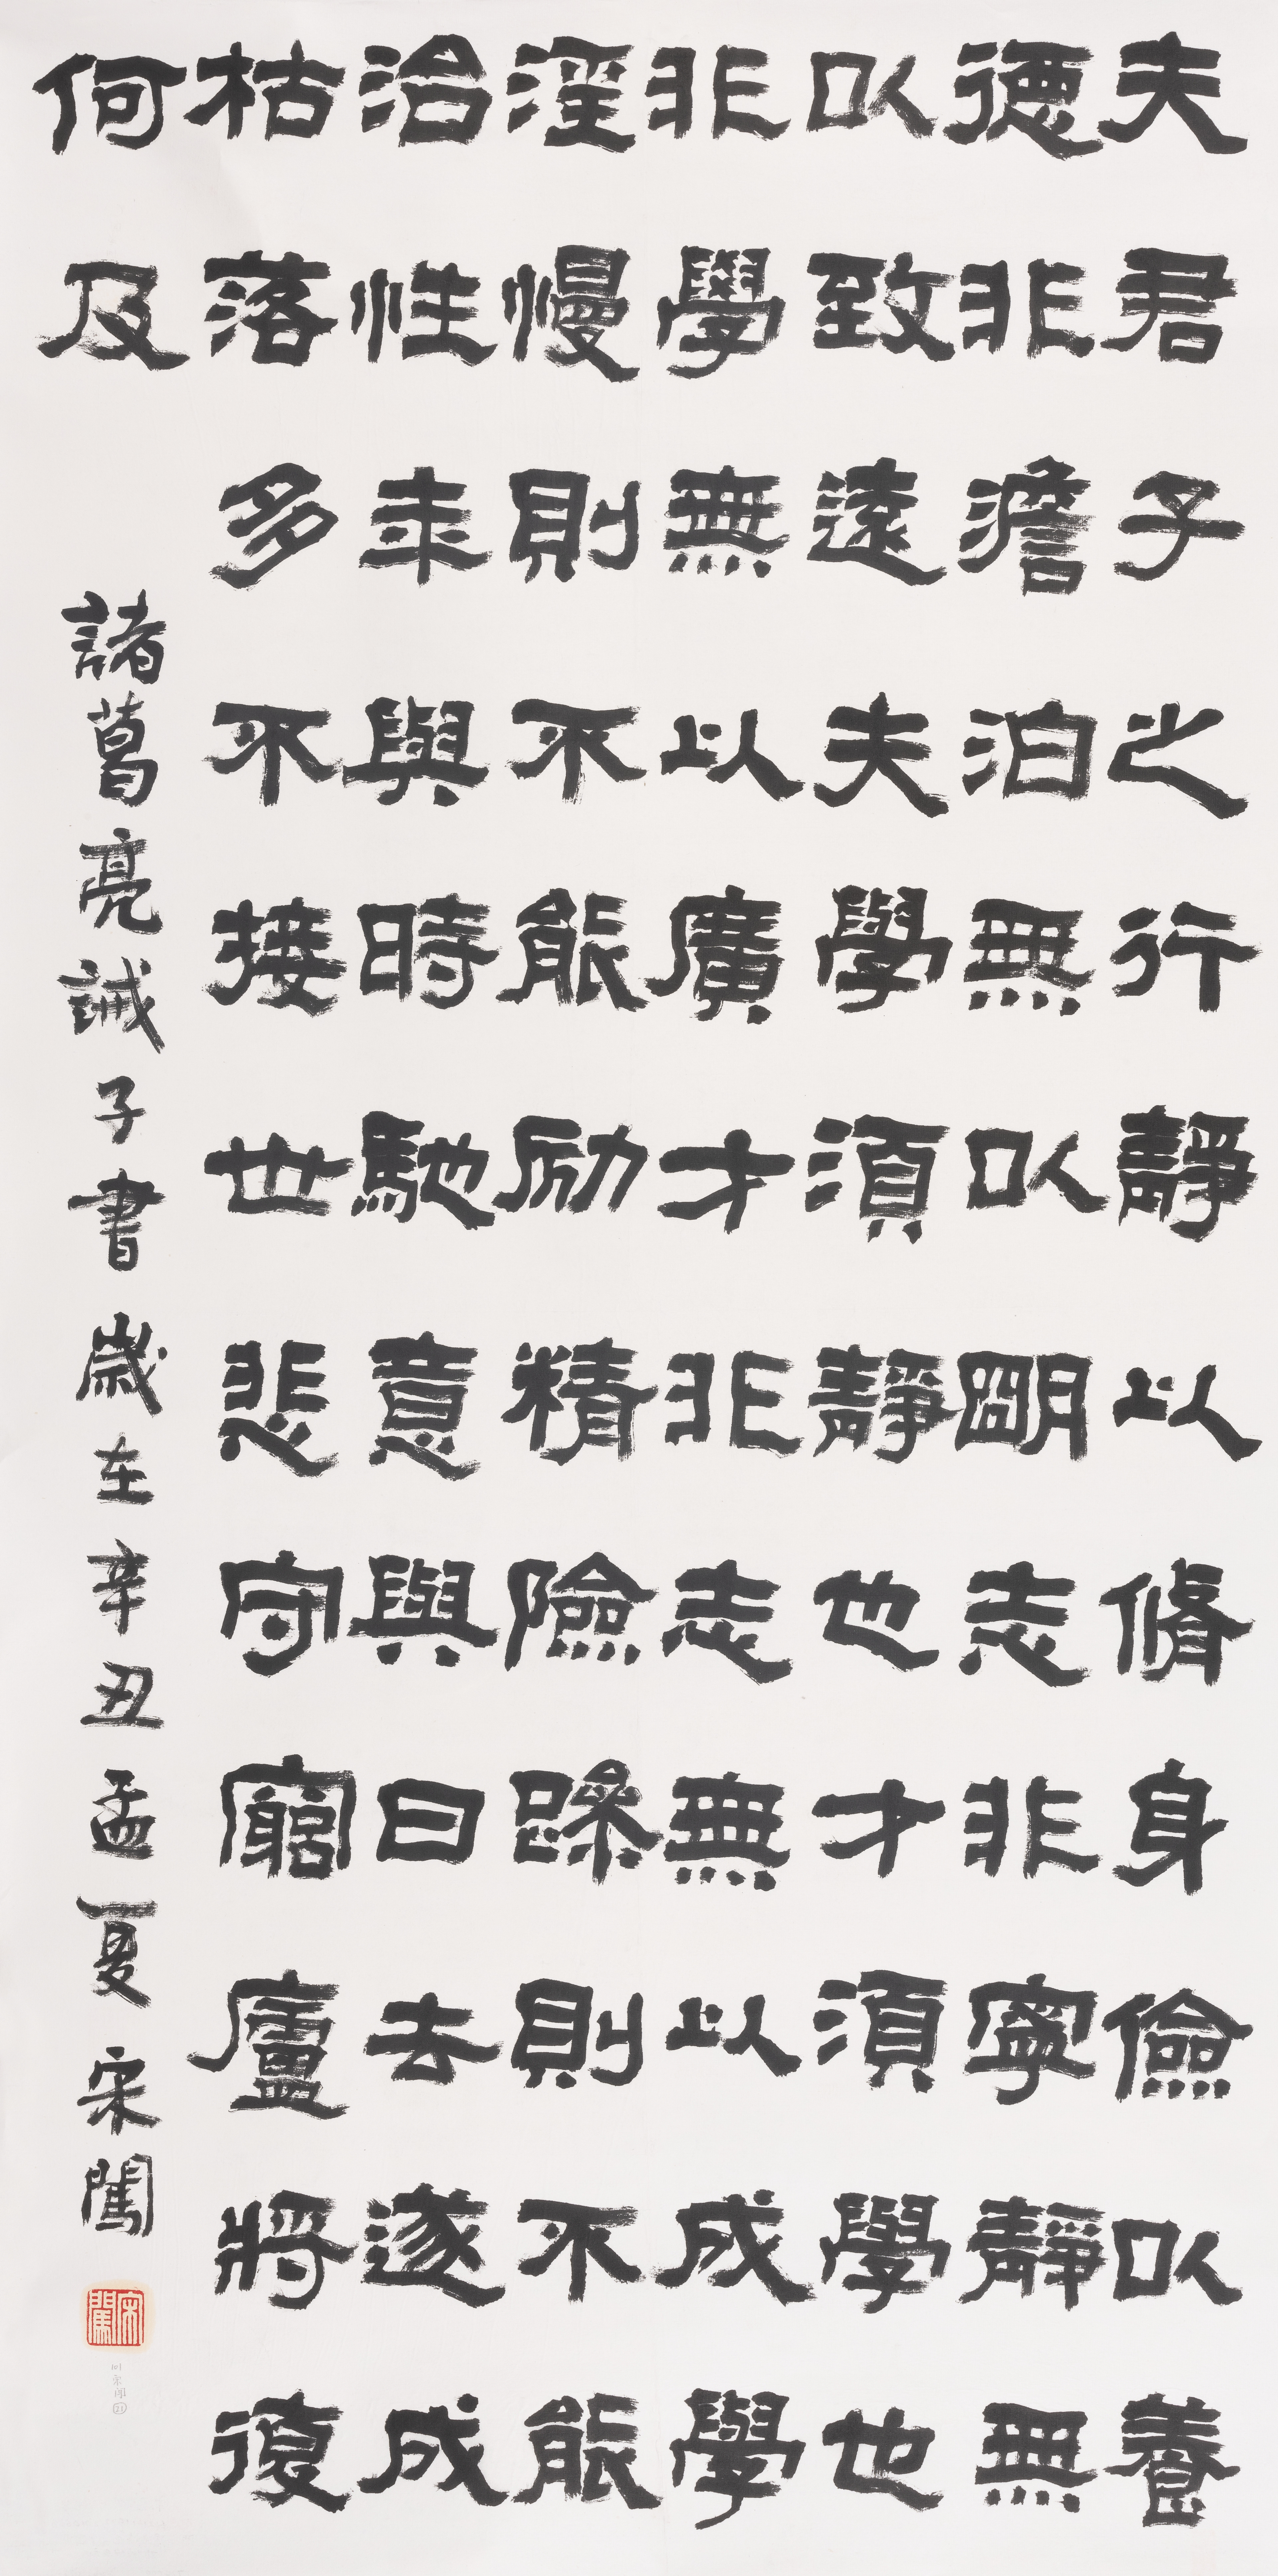 夫君子之行靜以脩身儉以養
德非澹泊無以朙志非寧靜無
以致遠夫學須靜也才須學也
非學無以廣才非志無以成學
淫慢則不能励精險躁則不能
治性年與時馳意與日去遂成
枯落多不接世悲守窮廬將復
何及
諸葛亮誡子書歲在辛丑孟夏宋闖
宋闖